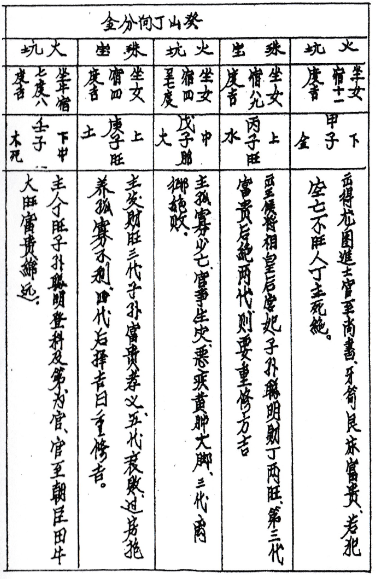 癸山丁向分金
火坑
坐女
宿十一
度吉
下
甲子
金
立得尤图進士官至尚書,牙笏良床富貴,若犯
空亡不旺人丁主死絕。
珠宝
坐女
宿八九
度吉
上
丙子旺
水
主王侯将相皇后宫妃,子孙聪明財丁两旺,第三代
富貴后絕两代,则要重修方吉
火坑
坐女
宿四
至七度
中
戊子胎
火
主孤寡少亡,官事生灾,悪疾黄肿大脚,三代离
鄉絕敗。
珠宝
坐女
宿四
度吉
上
庚子旺
土
主发財旺三代子孙富貴孝义,五代衰敗过房抱
养孤寡不利,四代后择吉日重修吉。
火坑
坐牛宿
七度八
度吉
下中
壬子
木死
主人丁旺子孙聪明登科及第,为官,官至朝臣田牛
大旺富貴綿远。